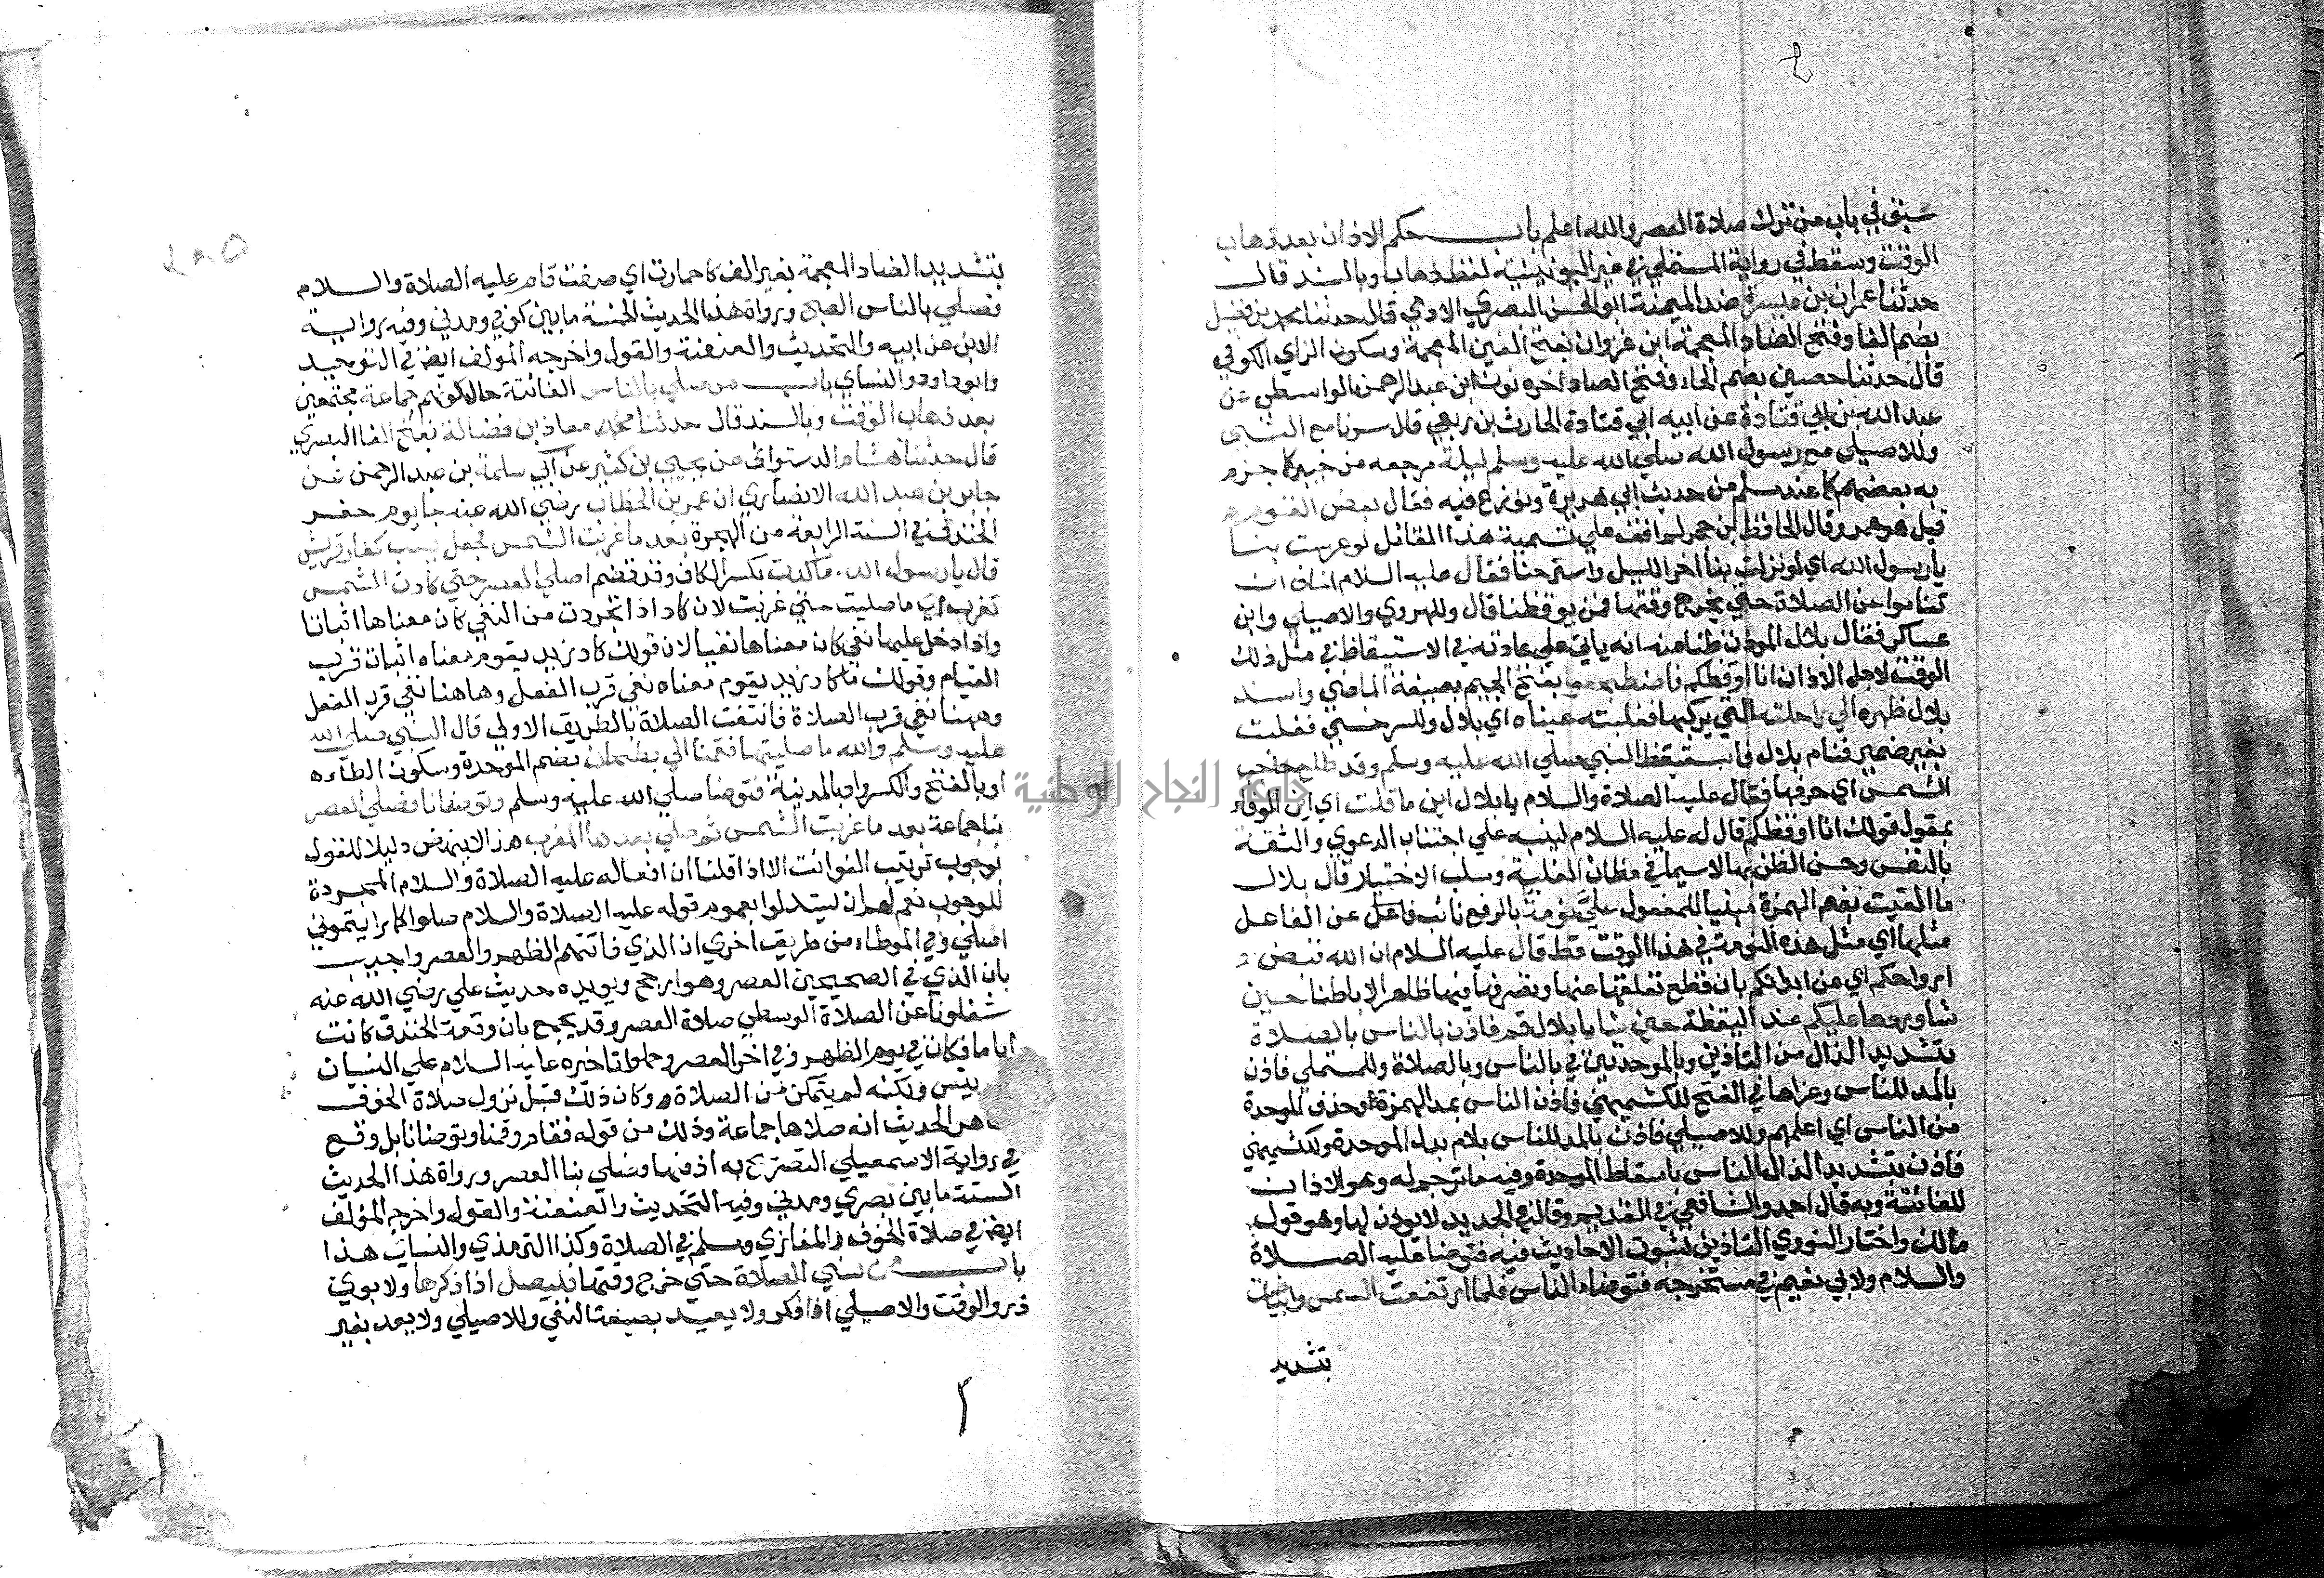 سبق في باب من ترك صلاة العصر والله اعلم باب حكم الاذان بعد ذهاب
الوقت وسقط في رواية المستملي في غير اليونينية لفظ ذهاب وبالسند قال
حدثنا عمران بن ميسرة ضد الميمنة ابو الحسن البصري الادمي قال حدثنا محمد بن فضيل
بضم الفا وفتح الضاد المعجمة ابن غزوان بفتح الغين المعجمة وسكون الزاي الكوفي
قال حدثنا حصين بضم الحاء وفتح الصاد اخره نون ابن عبد الرحمن الواسطي عن
عبد الله بن ابي قتادة عن ابيه ابي قتادة الحارث بن ربعي قال سرنا مع النبي
وللاصيلي مع رسول الله صلي الله عليه وسلم ليلة مرجعه من خيبر كما جزم
به بعضهم كما عند مسلم من حديث ابي هريرة ونوزع فيه فقال بعض القوم
قيل هو عمر وقال الحافظ بن حجر لم اقف علي تسمية هذا القائل لو عرست بنا
يا رسول الله اي لو نزلت بنا اخر الليل واسترحنا فقال عليه السلام اخاف ان
تناموا عن الصلاة حتي يخرج وقتها فمن يوقظنا قال وللهروي والاصيلي وابن
عساكر فقال بلال المؤذن ظنا منه انه ياتي علي عادته في الاستيقاظ في مثل ذلك
الوقت لاجل الاذان انا اوقظكم فاضطجعوا بفتح الجيم بصيغة الماضي واسند
بلال ظهره الي راحلته التي يركبها فغلبته عيناه اي بلال وللسرخسي فغلبت
بغير ضمير فنام بلال فاستيقظ النبي صلي الله عليه وسلم وقد طلع حاجب
الشمس اي حرفها فقال عليه الصلاة والسلام يا بلال اين ما قلت اي اين الوفاء
بمقول قولك انا اوقظكم قال له عليه السلام لينبه علي اجتناب الدعوي والثقة
بالنفس وحسن الظن بها لا سيما في مظان الغلبة وسلب الاختيار قال بلال
ما القيت بضم الهمزة مبنيا للمفعول عليّ نومة بالرفع نائب فاعل عن الفاعل
مثلها اي مثل هذه النومة في هذا الوقت قط قال عليه السلام ان الله قبض
ارواحكم اي من ابدانكم بان قطع تعلقها عنها وتصرفها فيها ظاهرا لا باطنا حين
شا وردها عليكم عند اليقظة حين شا يا بلال قم فاذن بالناس بالصلاة
بتشديد الذال من التاذين وبالموحدتين في بالناس وبالصلاة وللمستملي فاذن
بالمد للناس وعزاها في الفتح للكشميهني فاذن الناس بمد الهمزة وحذف الموحدة
من الناس اي اعلمهم وللاصيلي فاذن بالمد للناس بلام بدل الموحدة وللكشميهني
فاذن بتشديد الذال الناس باسقاط الموحدة وفيه ما ترجم له وهو الاذان
للفائتة وبه قال احمد والشافعي في القديم وقال في الجديد لا يوذن لها وهو قول
مالك واختار النووي التاذين لثبوت الاحاديث فيه فتوضا عليه الصلاة
والسلام ولابي نعيم في مستخرجه فتوضاء الناس فلما ارتفعت الشمس وابياضت
بتشديد
بتشديد الضاد المعجمة بغير الف كاحمارت اي صفت قام عليه الصلاة والسلام
فصلي بالناس الصبح ورواة هذا الحديث الخمسة ما بين كوفي ومدني وفيه رواية
الابن عن ابيه والتحديث والعنعنة والقول واخرجه المولف ايض في التوحيد
وابو داود والنساي باب من صلي بالناس الفائتة حال كونهم جماعة مجتمعين
بعد ذهاب الوقت وبالسند قال حدثنا معاذ بن فضالة بفتح الفا البصري
قال حدثنا هشام الدستوائي عن يحيي بن كثير عن ابي سلمة بن عبد الرحمن عن
جابر بن عبد الله الانصاري ان عمر بن الخطاب رضي الله عنه جا يوم حفر
الخندق في السنة الرابعة من الهجرة بعد ما غربت الشمس فجعل يسب كفار قريش
قال يا رسول الله ما كدت بكسر الكاف وقد تضم اصلي العصر حتي كادت الشمس
تغرب اي ما صليت حتي غربت لان كاد اذا تجردت من النفي كان معناها اثباتا
واذا دخل عليها نفي كان معناها نفيا لان قولك كاد زيد يقوم معناه اثبات قرب
القيام وقولك ما كاد زيد يقوم معناه نفي قرب الفعل وهاهنا نفي قرب الفعل
وههنا نفي قرب الصلاة فانتفت الصلاة بالطريق الاولي قال النبي صلي الله
عليه وسلم والله ما صليتها فقمنا الي بطحان بضم الموحدة وسكون الطاء
او بالفتح والكسر واد بالمدينة فتوضا صلي الله عليه وسلم وتوضانا فصلي العصر
بنا جماعة بعد ما غربت الشمس ثم صلي بعدها المغرب هذا لا ينهض دليلا للقول
بوجوب ترتيب الفوائت الا اذا قلنا ان افعاله عليه الصلاة والسلام المجردة
للوجوب نعم لهم ان يستدلوا بعموم قوله عليه الصلاة والسلام صلوا كما رايتموني
اصلي وفي الموطاء من طريق اخري ان الذي فاتهم الظهر والعصر واجيب
بان الذي في الصحيحين العصر وهو ارجح ويويده حديث علي رضي الله عنه
شغلونا عن الصلاة الوسطي صلاة العصر وقد يجمع بان وقعة الخندق كانت
اياما فكان في يوم الظهر وفي اخر العصر وحملوا تاخيره عليه السلام علي النسيان
ولكنه لم يتمكن من الصلاة وكان ذلك قبل نزول صلاة الخوف
الحديث انه صلاها جماعة وذلك من قوله فقام وقمنا وتوضانا بل وقع
في رواية الاسمعيلي التصريح به اذ فيها فصلي بنا العصر ورواة هذا الحديث
الستة ما بين بصري ومدني وفيه التحديث والعنعنة والقول واخرجه المؤلف
ايض في صلاة الخوف والمغازي ومسلم في الصلاة وكذا الترمذي والنساي هذا
باب من نسي الصلاة حتي خرج وقتها فليصل اذا ذكرها ولابوي
ذر والوقت والاصيلي اذا ذكر ولا يعيد بصيغة النفي وللاصيلي ولا يعد بغير
جامعة النجاح الوطنية